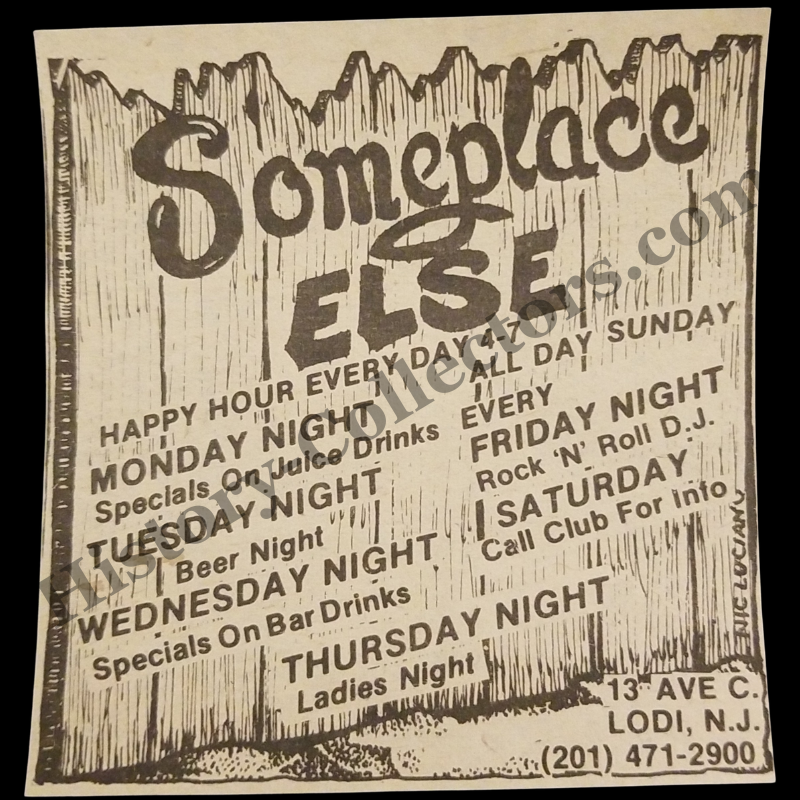 Someplace
ELSE
HAPPY HOUR EVERY DAY 4-7
ALL DAY SUNDAY
MONDAY NIGHT
Specials On Juice Drinks
TUESDAY NIGHT
Beer Night
WEDNESDAY NIGHT
Specials On Bar Drinks
THURSDAY NIGHT
Ladies Night
EVERY
FRIDAY NIGHT
Rock 'N' Roll D.J.
SATURDAY
Call Club For Info
NIC LUCIANO
13 AVE C.
LODI, N.J.
(201) 471-2900
HistoryCollectors.com